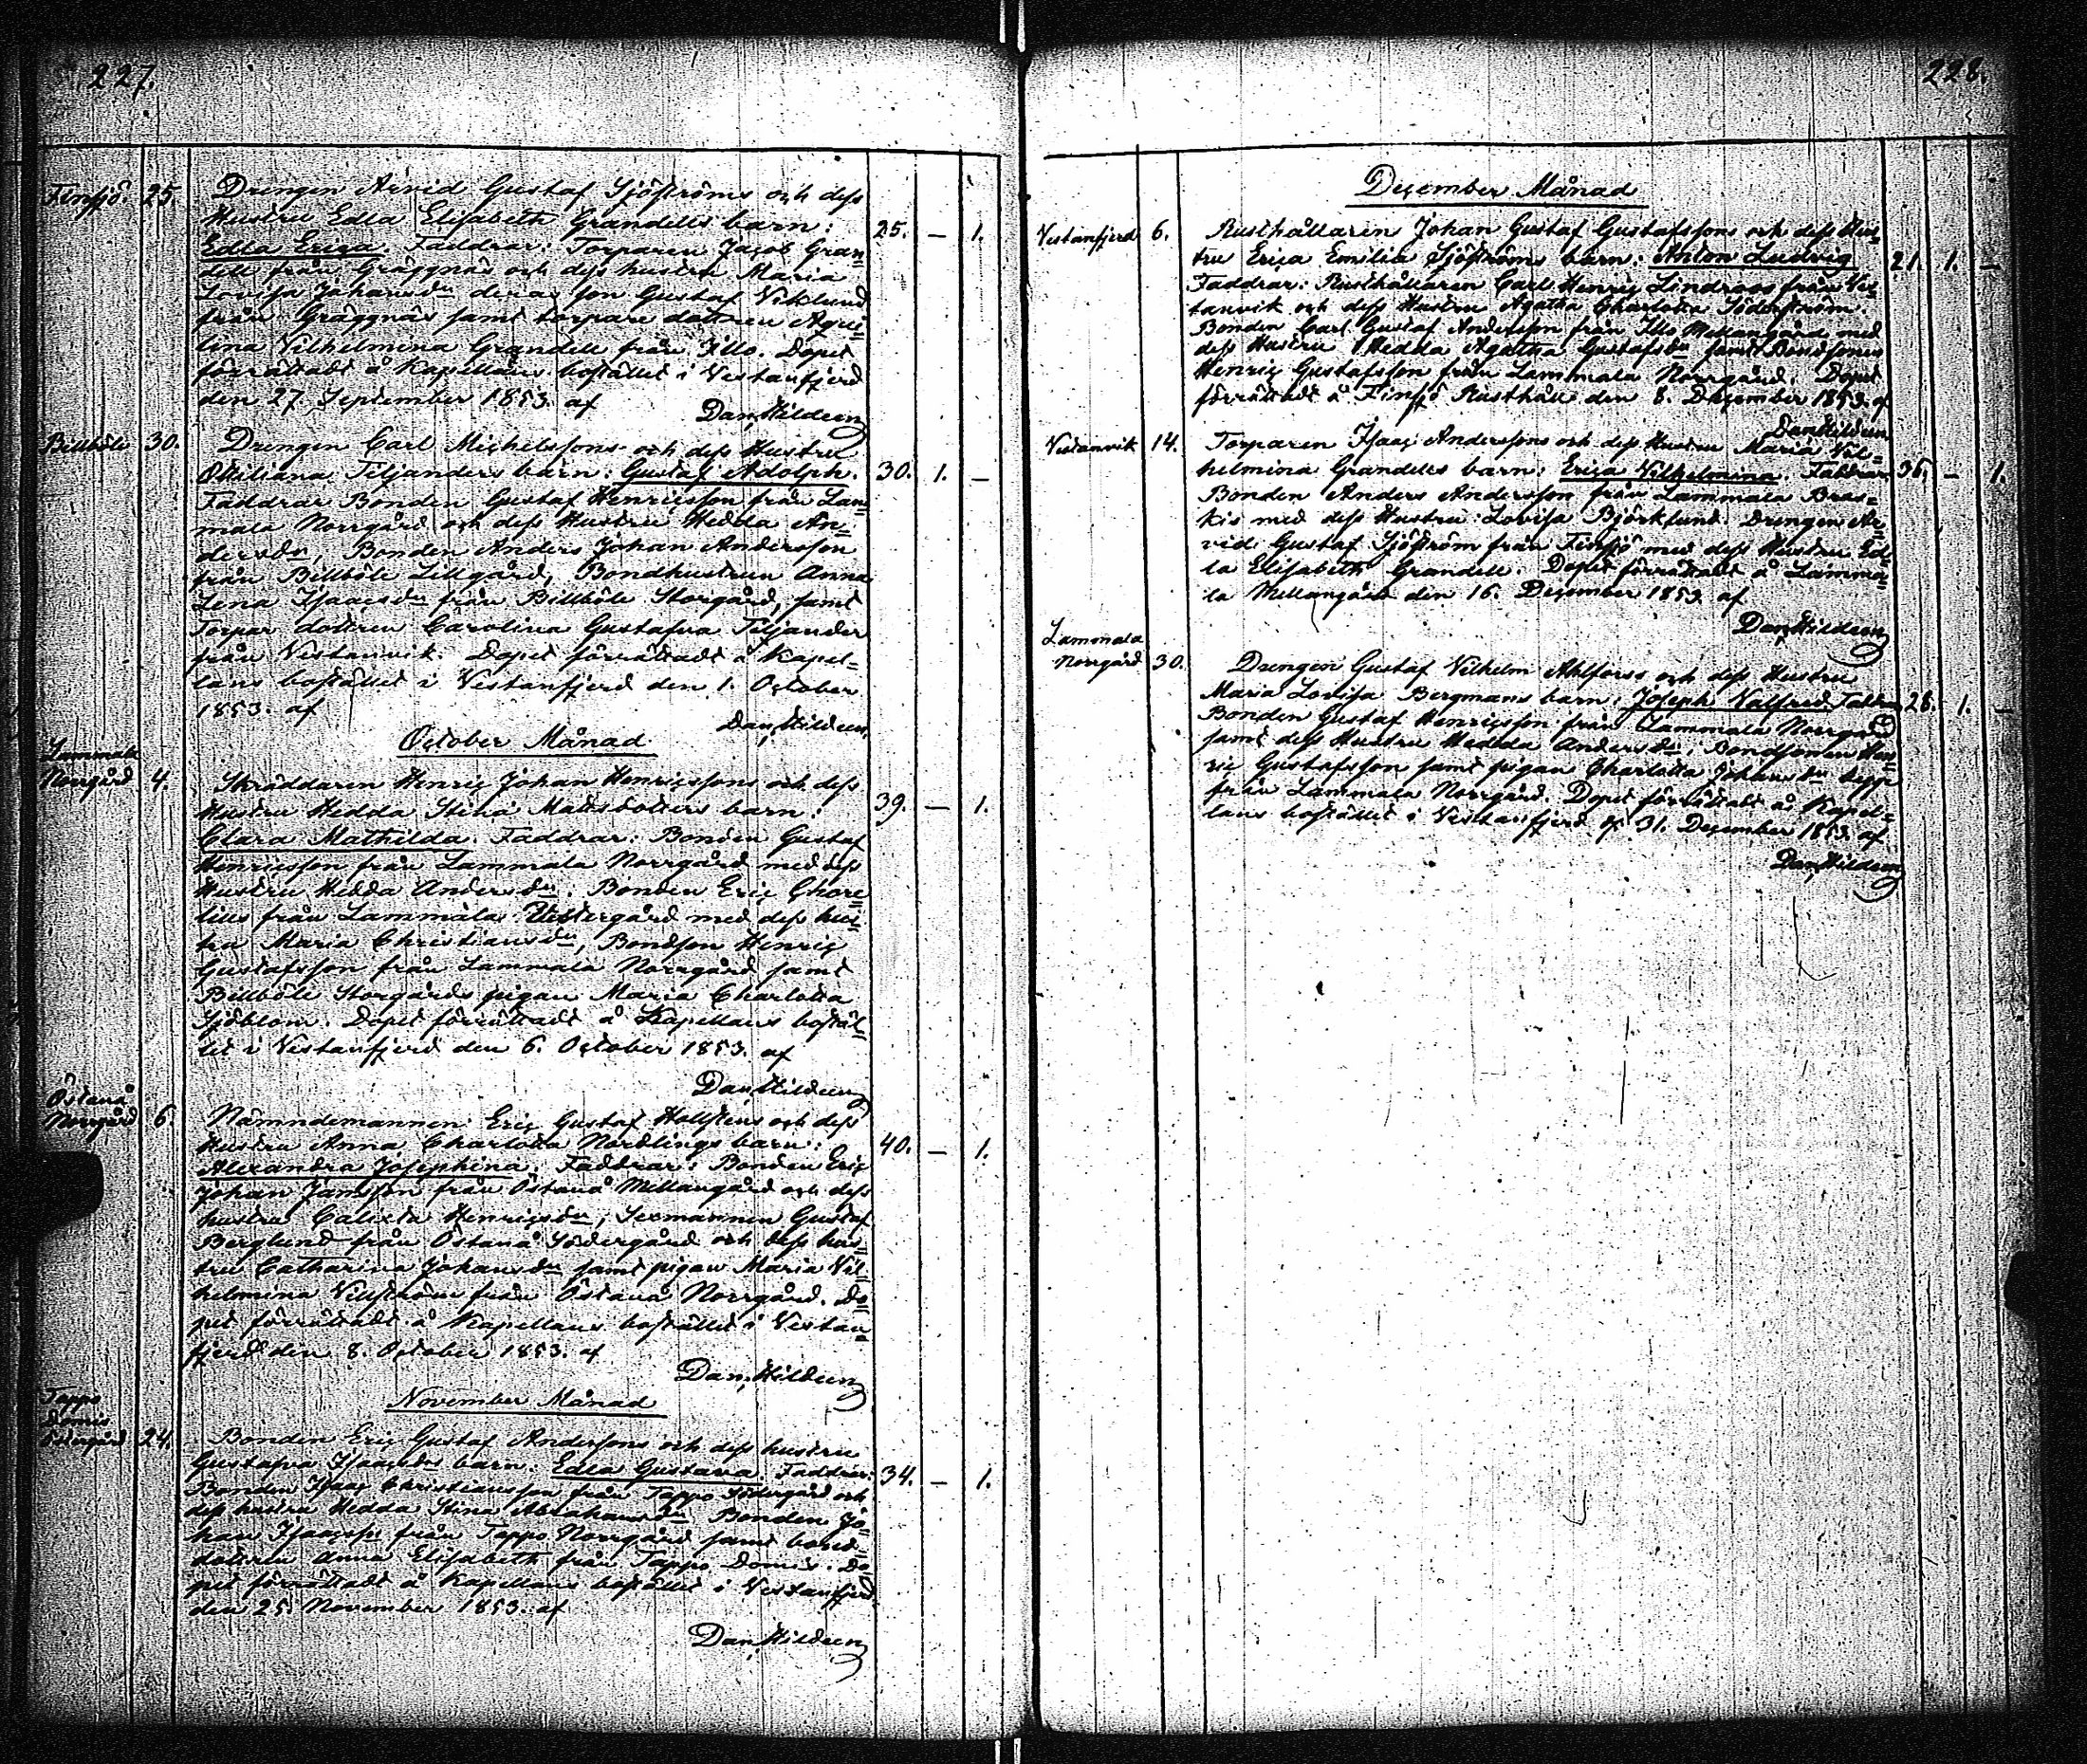 227.
Finsjö. 25. Drengen Arvid Gustaf Sjöströms och dess
Hustru Edla Elisabeth Grandells barn: 25. — 1.
Edla Erica. Faddrar: Torparen Jacob Gran=
dell från Gräggnäs och dess hustru Maria
Lovisa Johansdr deras son Gustaf Viklund
från Gräggnäs samt torpare dottren Aqvi=
lina Vilhelmina Grandell från Illo. Dopet
förrättadt å Kapellans bostället i Vestanfjerd
den 27 September 1853. af
Dan. Hildeen
Billböle 30. Drengen Carl Michelssons och dess Hustru
Ottiliana Teljanders barn: Gustaf Adolph. 30. 1. —
Faddrar Bonden Gustaf Henricsson från Lam=
mala Norrgård och dess Hustru Hedda An=
dersdr, Bonden Anders Johan Andersson
från Billböle Lillgård, Bondhustrun Anna
Lena Isaacsdr från Billböle Storgård, samt
Torpar dottren Carolina Gustafva Teljander
från Vestanvik. Dopet förrättadt å Kapel=
lans bostället i Vestanfjerd den 1. October
1853. af
Dan. Hildeen
October Månad
Lammala
Norrgård 4. Skräddaren Henric Johan Henricssons och dess
Hustru Hedda Stina Mattsdotters barn: 39. — 1.
Clara Mathilda. Faddrar: Bonden Gustaf
Henricsson från Lammala Norrgård med dess
Hustru Hedda Andersdr. Bonden Eric Chore
lius från Lammala Vestergård med dess hus=
tru Maria Christiansdr, Bondson Henric
Gustafsson från Lammala Norrgård samt
Billböle Storgårds pigan Maria Charlotta
Sjöblom. Dopet förrättadt å Kapellans bostäl=
let i Vestanfjerd den 6. October 1853. af
Dan. Hildeen
Östanå
Norrgård 6. Nämndemannen Eric Gustaf Hollstens och dess
Hustru Anna Charlotta Nordlings barn: 40. — 1.
Alexandra Josephina. Faddrar: Bonden Eric
Johan Jansson från Östanå Mellangård och dess
hustru Calixta Henricsdr, Sexmannen Gustaf
Berglund från Östanå Södergård och dess hus=
tru Catharina Johansdr samt pigan Maria Vil=
helmina Vinström från Östanå Norrgård. Do=
pet förrättadt å Kapellans bostället i Vestan=
fjerd den 8. October 1853. af
Dan. Hildeen
November Månad
Tappo
Domis
Södergård 24. Bonden Eric Gustaf Anderssons och dess hustru
Gustafva Isaacsdrs barn: Edla Gustava. Faddrar: 34. — 1.
Bonden Isaac Christiansson från Tappo Södergård och
dess hustru Hedda Stina Abrahamsdr Bonden Jo=
han Isaacsson från Tappo Norrgård samt bond=
dottren Anna Elisabeth från Tappo Domis. Do=
pet förrättadt å Kapellans bostället i Vestanfjerd
den 25 November 1853. af
Dan. Hildeen
228.
December Månad
Vestanfjerd 6. Rusthållaren Johan Gustaf Gustafssons och dess Hus=
tru Erica Emilia Sjöströms barn: Anton Ludvig 21. 1. —
Faddrar: Rusthållaren Carl Henric Lindroos från Ves=
tanvik och dess Hustru Agatha Charlotta Söderström.
Bonden Carl Gustaf Andersson från Illo Mellangård med
dess Hustru Hedda Agatha Gustafsdr samt Bondsonen
Henric Gustafsson från Lammala Norrgård. Dopet
förrättadt å Finsjö Rusthåll den 8. December 1853. af
Dan. Hildeen
Vestanvik 14. Torparen Isaac Anderssons och dess Hustru Maria Vil=
helmina Grandells barn: Erica Vilhelmina. Faddrar 36. — 1.
Bonden Anders Andersson från Lammala Bras=
kis med dess Hustru Lovisa Björklund. Drengen Ar=
vid Gustaf Sjöström från Finsjö med dess Hustru Ed=
la Elisabeth Grandell. Dopet förrättadt å Lamma=
la Mellangård den 16. December 1853. af
Dan. Hildeen
Lammala
Norrgård 30. Drengen Gustaf Vilhelm Ahlforss och dess Hustru
Maria Lovisa Bergmans barn: Joseph Valfrid. Faddrar 28. 1. —
Bonden Gustaf Henricsson från Lammala Norrgård
samt dess Hustru Hedda Andersdr; Bondsonen Hen=
ric Gustafsson samt pigan Charlotta Johansdr begge
från Lammala Norrgård. Dopet förrättadt å Kapel=
lans bostället i Vestanfjerd d. 31. December 1853 af
Dan. Hildeen